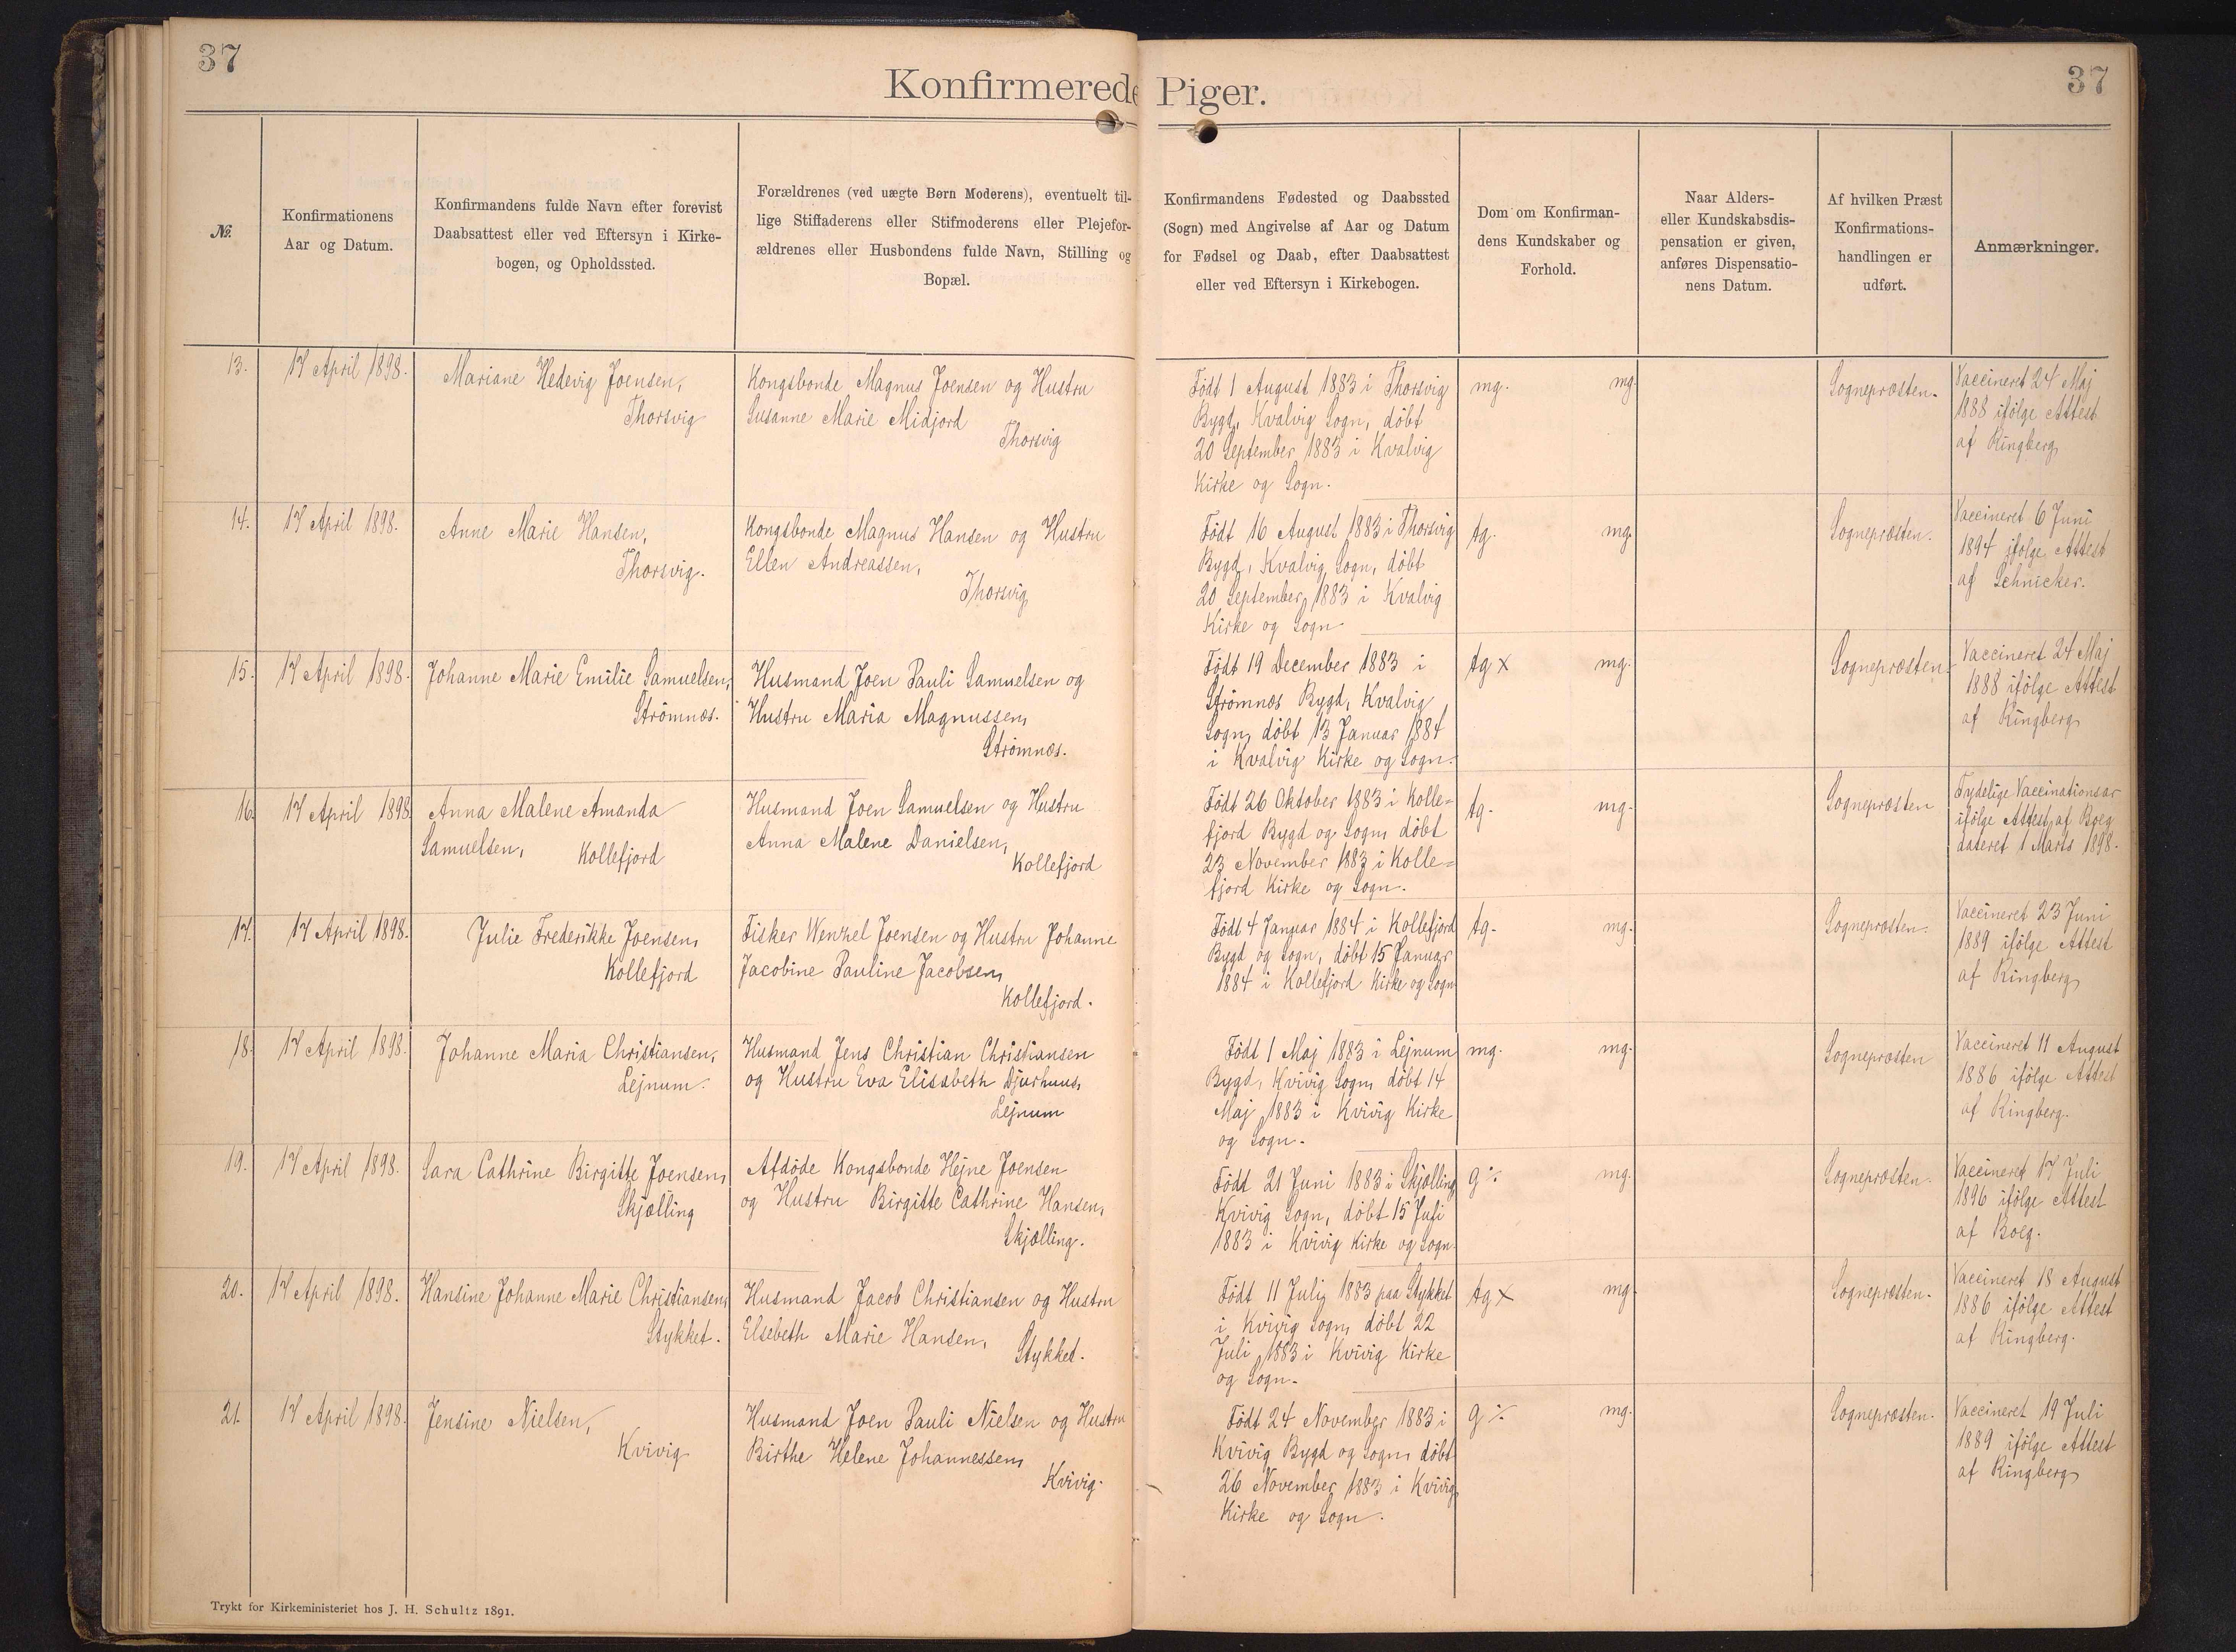 37
37
Konfirmerede Piger.
№.
Konfirmationens
Aar og Datum.
Konfirmandens fulde Navn efter forevist
Daabsattest eller ved Eftersyn i Kirke-
bogen, og Opholdssted.
Forældrenes (ved uægte Børn Moderens), eventuelt til-
lige Stiffaderens eller Stifmoderens eller Plejefor-
ældrenes eller Husbondens fulde Navn, Stilling og
Bopæl.
Konfirmandens Fødested og Daabssted
(Sogn) med Angivelse af Aar og Datum
for Fødsel og Daab, efter Daabsattest
eller ved Eftersyn i Kirkebogen.
Dom om Konfirman-
dens Kundskaber og
Forhold.
Naar Alders-
eller Kundskabsdis-
pensation er given,
anføres Dispensatio-
nens Datum.
Af hvilken Præst
Konfirmations-
handlingen er
udført.
Anmærkninger.
13.
17 April 1898.
Mariane Hedevig Joensen,
Thorsvig
Kongsbonde Magnus Joensen og Hustru
Susanne Marie Midjord
Thorsvig
Født 1 August 1883 i Thorsvig
Bygd, Kvalvig Sogn, döbt
20 September 1883 i Kvalvig
Kirke og Sogn.
mg. mg.
Sognepræsten.
Vaccineret 24 Maj
1888 ifölge Attest
af Ringberg
14.
17 April 1898.
Anne Marie Hansen,
Thorsvig.
Kongsbonde Magnus Hansen og Hustru
Ellen Andreassen,
Thorsvig
Födt 16 August 1883 i Thorsvig
Bygd, Kvalvig Sogn, döbt
20 September 1883 i Kvalvig
Kirke og Sogn.
tg. mg.
Sognepræsten.
Vaccineret 6 Juni
1894 ifölge Attest
af Schnicker.
15.
17 April 1898.
Johanne Marie Emilie Samuelsen,
Strömnæs.
Husmand Joen Pauli Samuelsen og
Hustru Maria Magnussen,
Strömnæs.
Födt 19 December 1883 i
Strömnæs Bygd, Kvalvig
Sogn, döbt 13 Januar 1884
i Kvalvig Kirke og Sogn.
tg x mg.
Sognepræsten.
Vaccineret 24 Maj
1888 ifölge Attest
af Ringberg
16.
17 April 1898.
Anna Malene Amanda
Samuelsen, Kollefjord
Husmand Joen Samuelsen og Hustru
Anna Malene Danielsen,
Kollefjord
Födt 26 Oktober 1883 i Kolle=
fjord Bygd og Sogn, döbt
23 November 1883 i Kolle=
fjord Kirke og Sogn.
tg. mg.
Sognepræsten
Tydelige Vaccinationsar
ifölge Attest af Boeg
dateret 1 Marts 1898.
17.
17 April 1898.
Julie Frederikke Joensen,
Kollefjord
Fisker Wenzel Joensen og Hustru Johanne
Jacobine Pauline Jacobsen,
Kollefjord.
Födt 4 Januar 1884 i Kollefjord
Bygd og Sogn, döbt 15 Januar
1884 i Kollefjord Kirke og Sogn
tg. mg.
Sognepræsten.
Vaccineret 23 Juni
1889 ifölge Attest
af Ringberg
18.
17 April 1898.
Johanne Maria Christiansen,
Lejnum.
Husmand Jens Christian Christiansen
og Hustru Eva Elisabeth Djurhuus,
Lejnum
Födt 1 Maj 1883 i Lejnum
Bygd, Kvivig Sogn, döbt 14
Maj 1883 i Kvivig Kirke
og Sogn.
mg. mg.
Sognepræsten
Vaccineret 11 August
1886 ifölge Attest
af Ringberg.
19.
17 April 1898.
Sara Cathrine Birgitte Joensen,
Skjælling
Afdöde Kongsbonde Hejne Joensen
og Hustru Birgitte Cathrine Hansen,
Skjælling.
Födt 21 Juni 1883 i Skjælling
Kvivig Sogn, döbt 15 Juli
1883 i Kvivig Kirke og Sogn.
g ÷ mg.
Sognepræsten.
Vaccineret 17 Juli
1896 ifölge Attest
af Boeg.
20.
17 April 1898.
Hansine Johanne Marie Christiansen,
Stykket.
Husmand Jacob Christiansen og Hustru
Elsebeth Marie Hansen,
Stykket.
Födt 11 Juli 1883 paa Stykket
i Kvivig Sogn, döbt 22
Juli 1883 i Kvivig Kirke
og Sogn.
tg x mg.
Sognepræsten.
Vaccineret 18 August
1886 ifölge Attest
af Ringberg.
21.
17 April 1898.
Jensine Nielsen,
Kvivig
Husmand Joen Pauli Nielsen og Hustru
Birthe Helene Johannessen,
Kvivig.
Födt 24 November 1883 i
Kvivig Bygd og Sogn, döbt
26 November 1883 i Kvivig
Kirke og Sogn.
g ÷ mg.
Sognepræsten.
Vaccineret 19 Juli
1889 ifölge Attest
af Ringberg
Trykt for Kirkeministeriet hos J. H. Schultz 1891.